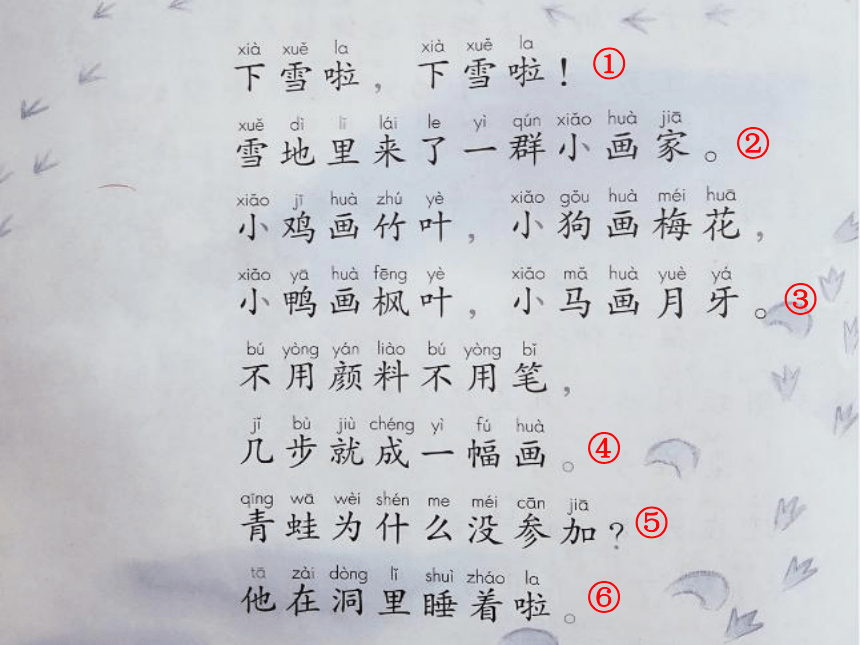 xià xuě la xià xuě la
下雪啦，下雪啦！ ①
xuě dì lǐ lái le yì qún xiǎo huà jiā
雪地里来了一群小画家。 ②
xiǎo jī huà zhú yè xiǎo gǒu huà méi huā
小鸡画竹叶，小狗画梅花，
xiǎo yā huà fēng yè xiǎo mǎ huà yuè yá
小鸭画枫叶，小马画月牙。 ③
bú yòng yán liào bú yòng bǐ
不用颜料不用笔，
jǐ bù jiù chéng yì fú huà
几步就成一幅画。 ④
qīng wā wèi shén me méi cān jiā
青蛙为什么没参加？ ⑤
tā zài dòng lǐ shuì zháo la
他在洞里睡着啦。 ⑥